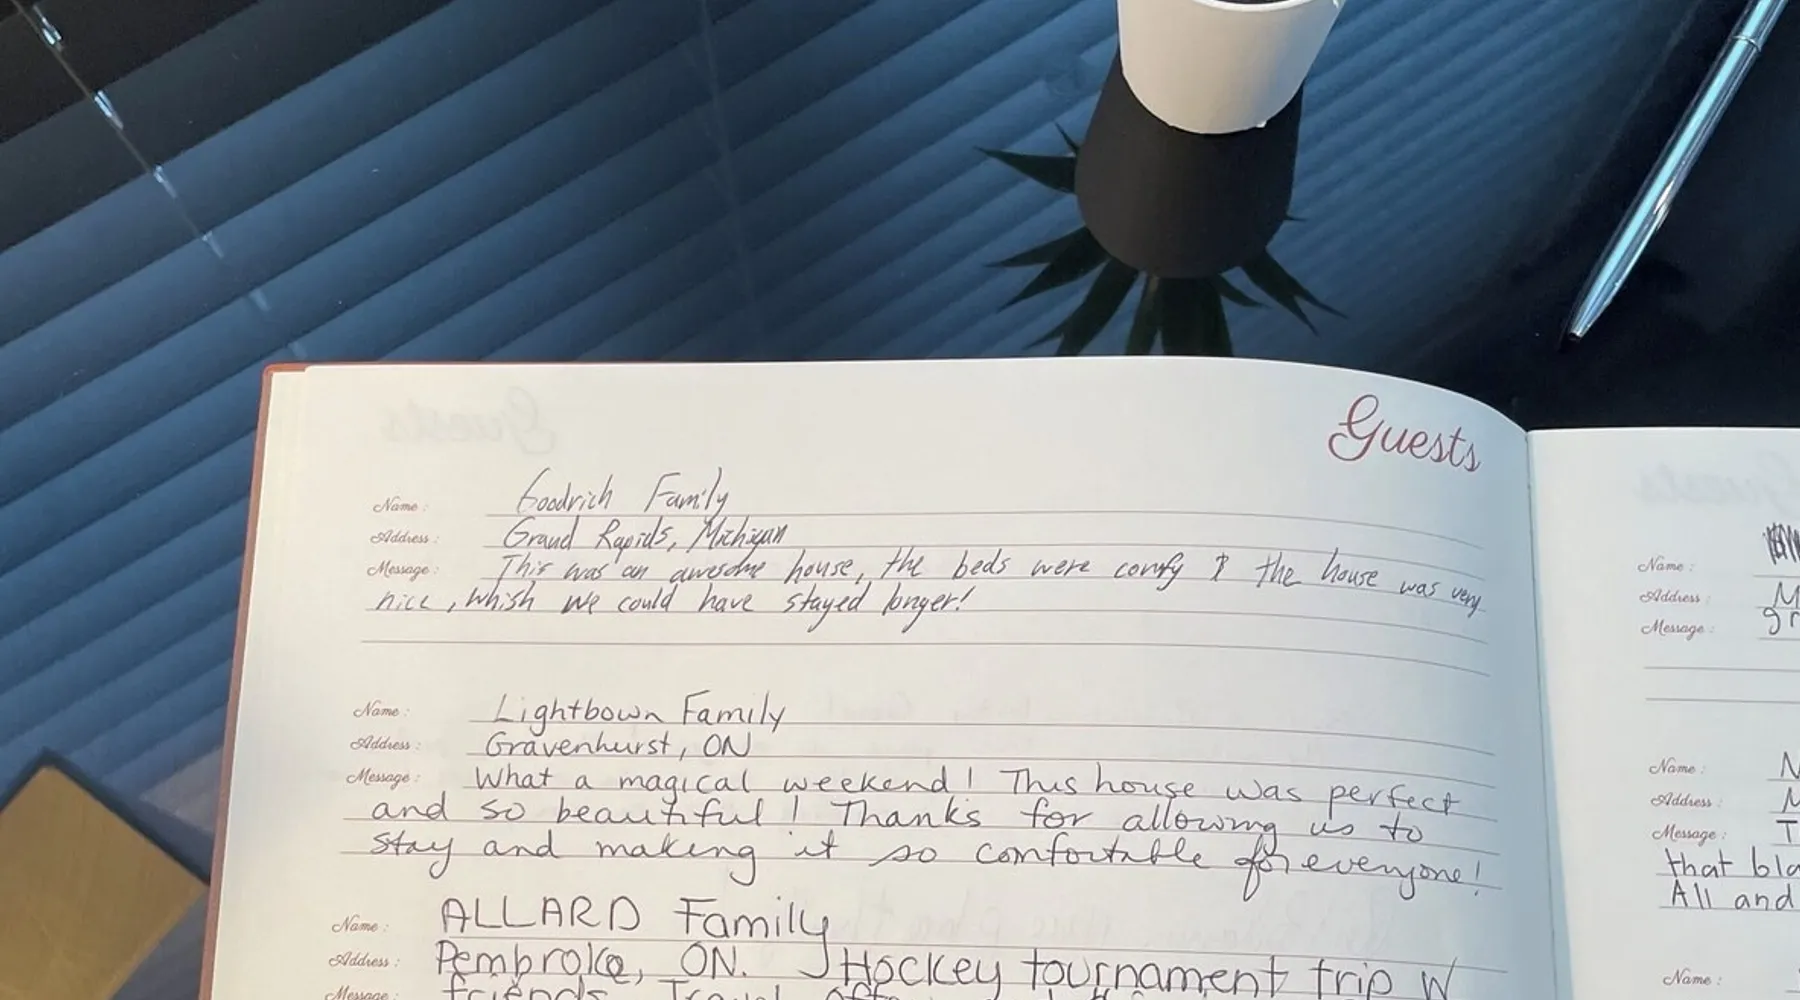 Guests
Name: Goodrich Family
Address: Grand Rapids, Michigan
Message: This was an awesome house, the beds were comfy & the house was very
nice, whish we could have stayed longer!
Name: Lightbown Family
Address: Gravenhurst, ON
Message: What a magical weekend! This house was perfect
and so beautiful! Thanks for allowing us to
stay and making it so comfortable for everyone!
Name: ALLARD Family
Address: Pembroke, ON. Hockey tournament trip W
Message: friends. Travel
Name:
Address: M
Message: gr
Name: N
Address: M
Message: T
that bla
All and
Name: